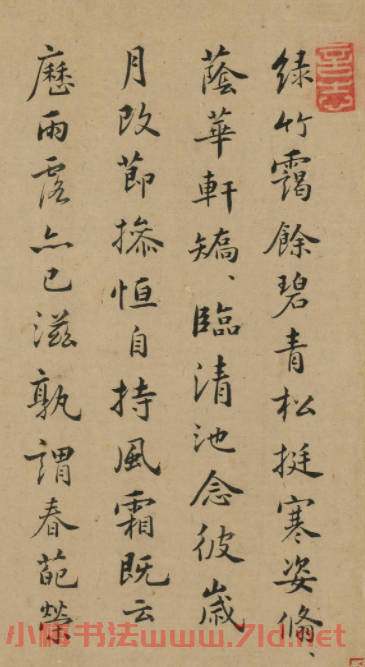 绿竹靄餘碧青松挺寒姿脩、
蔭華軒矯、臨清池念彼歲
月改節摻恒自持風霜既云
歷雨露亦已滋孰謂春葩榮
小楷书法www.7ld.net